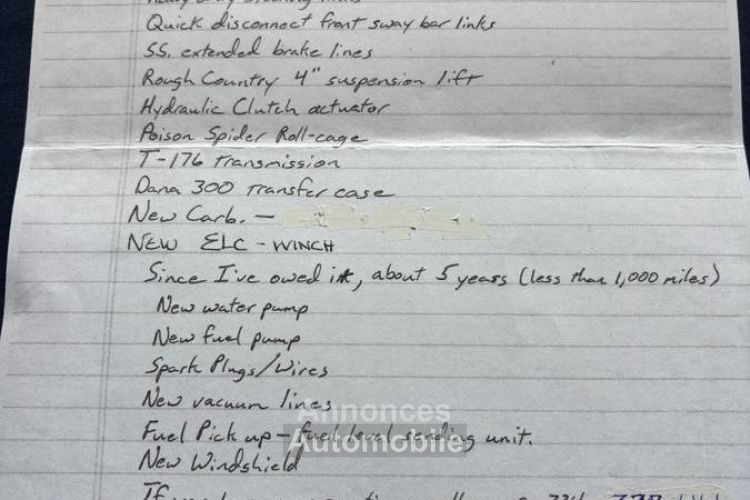 Quick disconnect front sway bar links
SS. extended brake lines
Rough Country 4" suspension lift
Hydraulic Clutch actuator
Poison Spider Roll-cage
T-176 Transmission
Dana 300 Transfer case
New Carb. -
NEW ELC - WINCH
Since I've owed it, about 5 years (less than 1,000 miles)
New water pump
New fuel pump
Spark Plugs/Wires
New vacuum lines
Annonces
Fuel Pick up - fuel level sending unit.
Automobile
New Windshield
If